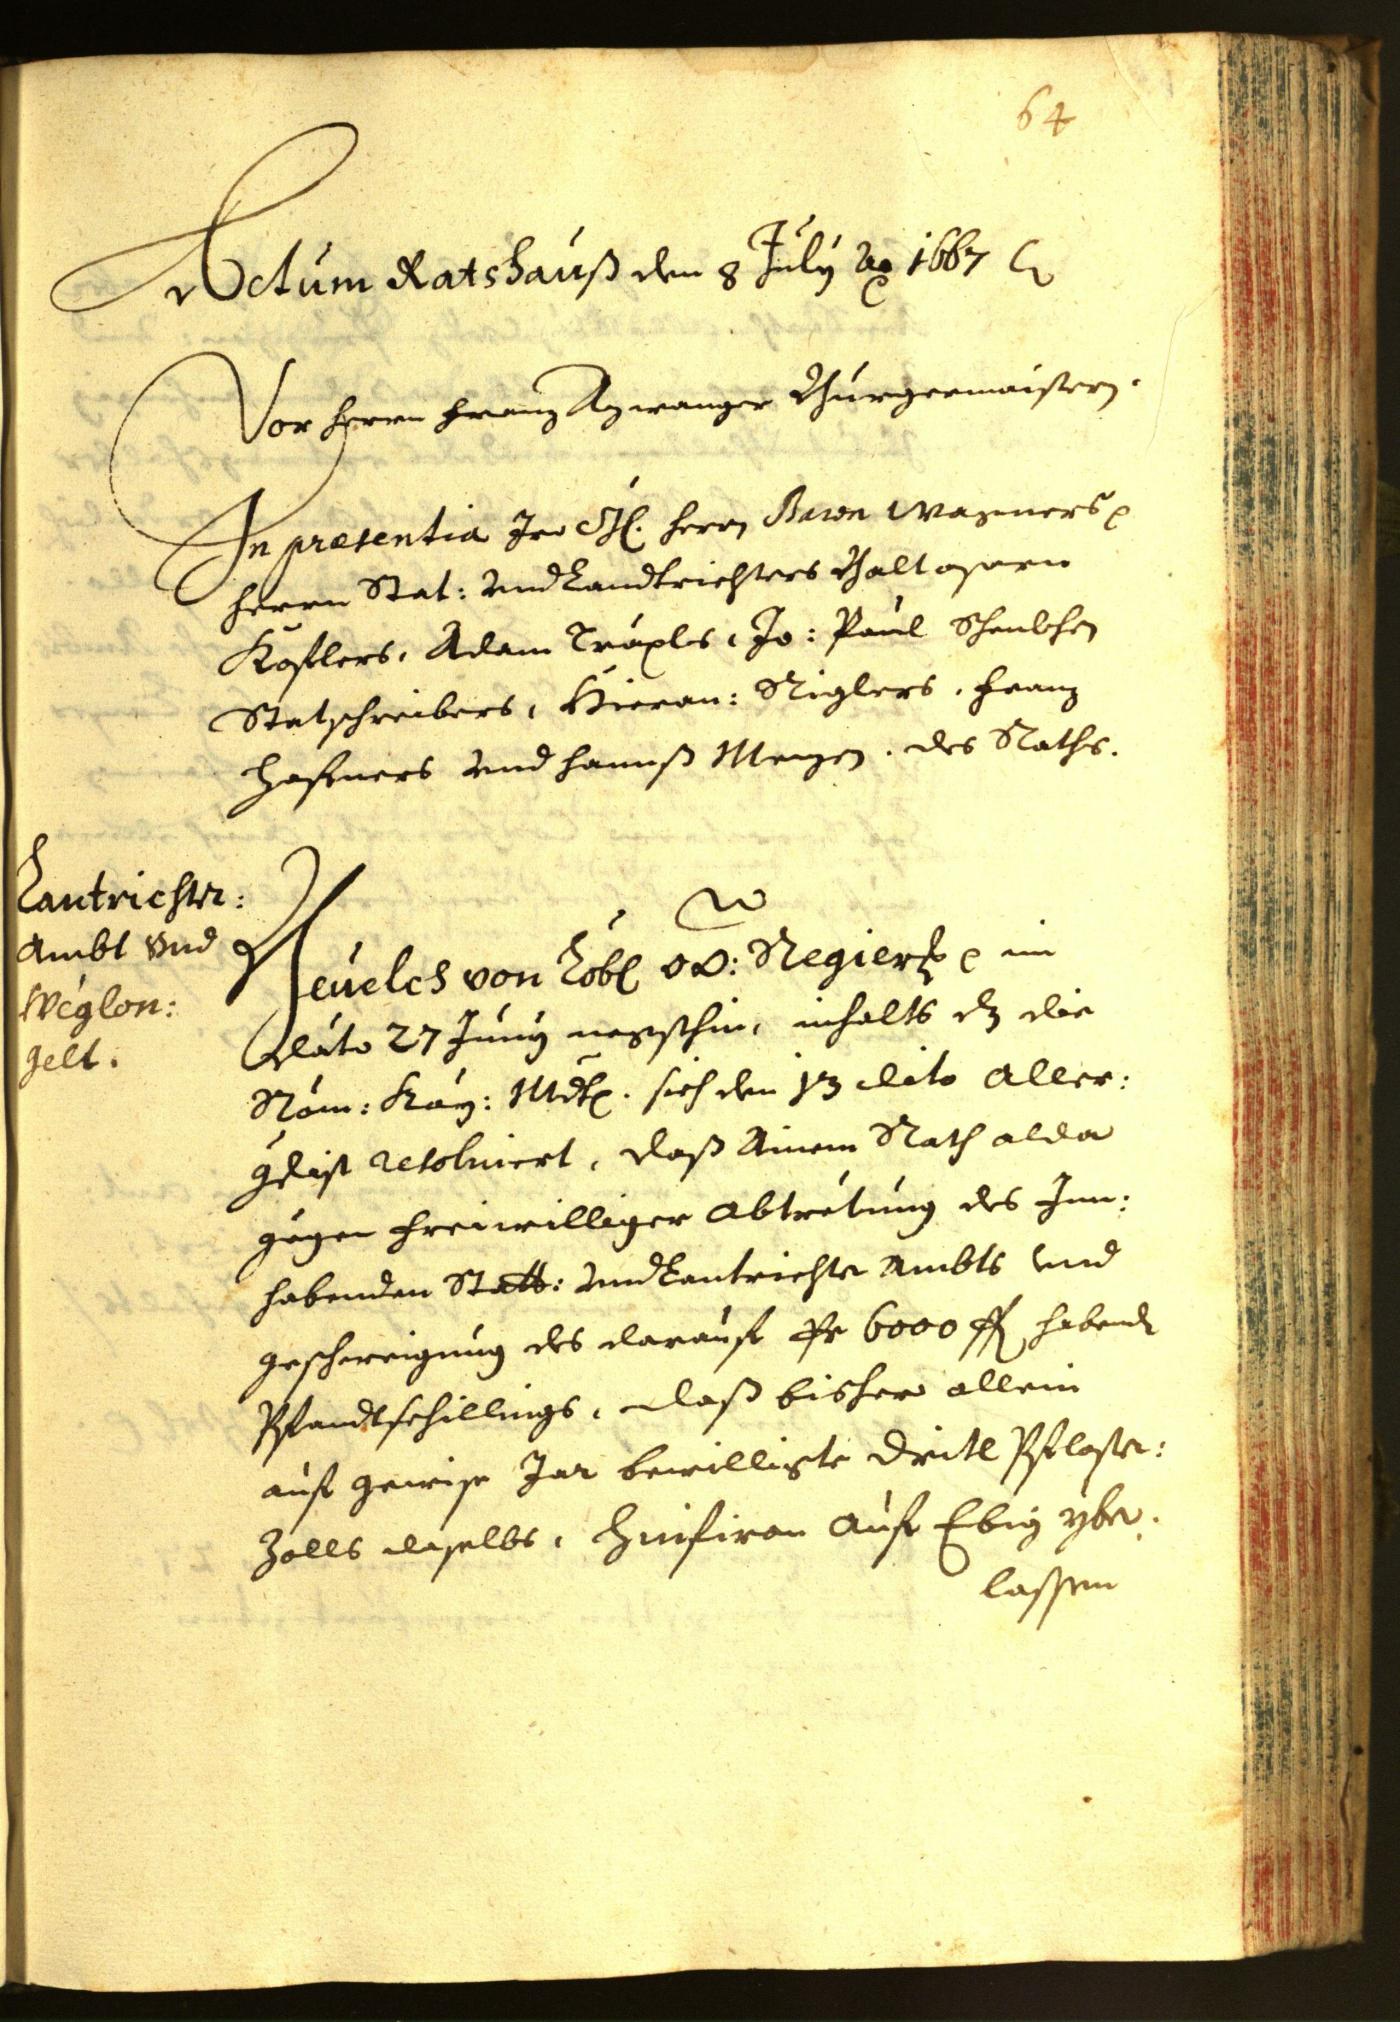 64
Actum Ratshauß den 8 July Ao 1667
Vor herrn Franz Azwanger Burgermaistern.
In praesentia Iro Gst. herrn Baron Wagners
herrn Stat: und Landtrichters Balthasarn
Kostlers, Adam Träxls, Jo: Paul Schenkhen
Statschreibers, Hieron: Riglers, Franz
Hafners und Hannß Mayen. des Raths.
Lantrichter:
Ambt und
Weglon:
gelt.
Beuelch von Löbl OÖ: Regierg im
dato 27 Juny negsthin, inhalts dz die
Röm: Kay: Mdt. sich den 13 dito aller:
gdist resoluiert, daß Ainem Rath alda
gegen freiwilliger abtretung des Inn:
habenden Statt: und Lantrichter Ambts und
geschweigung des darauf pr 6000 fl habendn
Pfandtschillings, daß bisher allein
auf gewise Jar bewilligte drittl Pflaster:
Zolls daselbs, hinfiron auf Ebig yber:
lassen